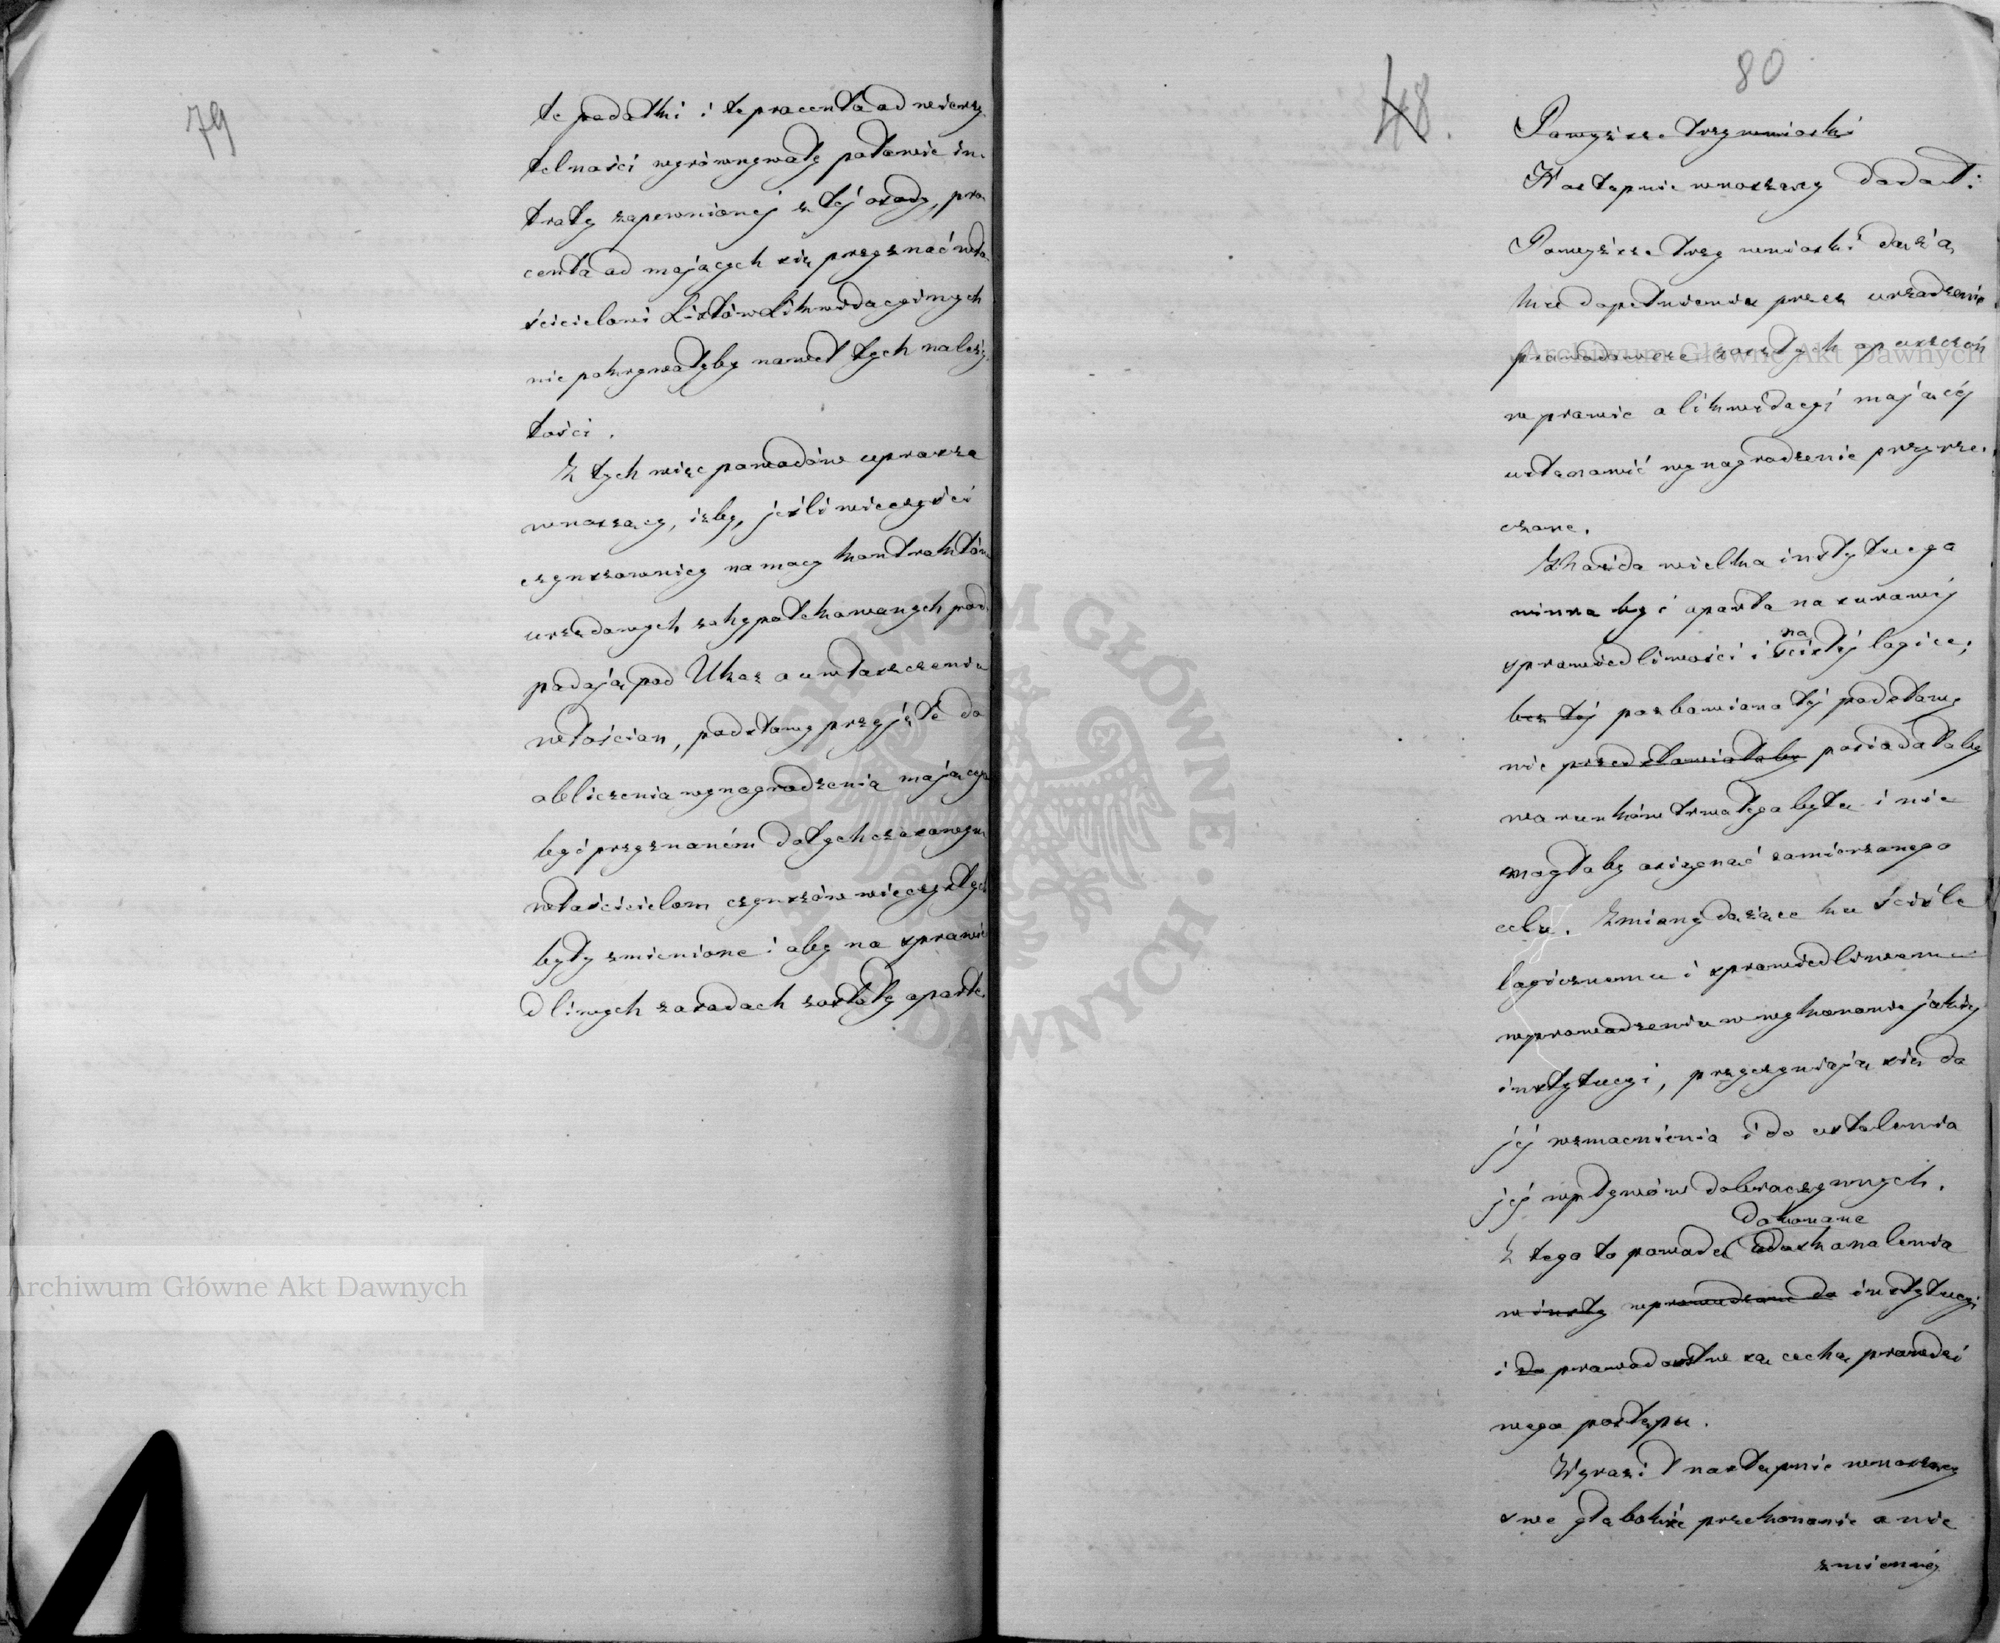 79
te podatki i te procenta od wierzy-
telności wyrównywały połowie in-
traty zapewnionej z tej osady, pro-
centa od mających się przyznać wła-
ścicielowi Listów Likwidacyjnych
nie pokrywałyby nawet tych należy-
tości.
Z tych więc powodów uprasza
wnoszący, iżby, jeśli wieczyści
czynszownicy na mocy kontraktów
urzędowych zahypotekowanych pod
padają pod Ukaz o uwłaszczeniu
włościan, podstawy przyjęte do
obliczenia wynagrodzenia mającego
być przyznaném dotychczasowym
właścicielom czynszów wieczystych
były zmienione i aby na sprawie
dliwych zasadach zostały oparte.
80
48.
Powyższe trzy wnioski
Następnie wnoszący dodał:
Powyższe trzy wnioski dążą
ku dopełnieniu przez urządzenia
prawodawcze zaszłych opuszczeń
w prawie o likwidacyi mającej
ustanowić wynagrodzenie przyrze-
czone.
Każda wielka instytucya
winna być oparta na surowej
sprawiedliwości i na ścisłej logice;
bez tej pozbawiona tej podstawy
nie przedstawiałaby posiadałaby
warunków trwałego bytu i nie
mogłaby osięgnąć zamierzonego
celu. Zmiany dążące ku ściśle
logicznemu i sprawiedliwemu
wprowadzeniu w wykonanie jakiej
instytucyi, przyczyniają się do
jej wzmocnienia i do ustalenia
jej wpływów dobroczynnych.
dokonane
Z tego to powodu udoskonalenia
w insty wprowadzone do instytucyi
i do prawodawstw są cechą prawdzi
wego postępu.
Wyraził następnie wnoszący
swe głębokie przekonanie o nie
zmiennej
Archiwum Główne Akt Dawnych
Archiwum Główne Akt Dawnych
ARCHIWUM GŁÓWNE AKT DAWNYCH